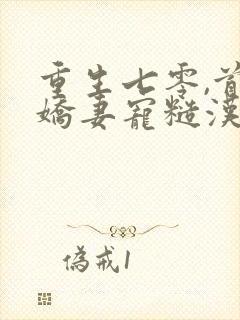 重生七零,首
嬌妻寵糙漢
偽戒1